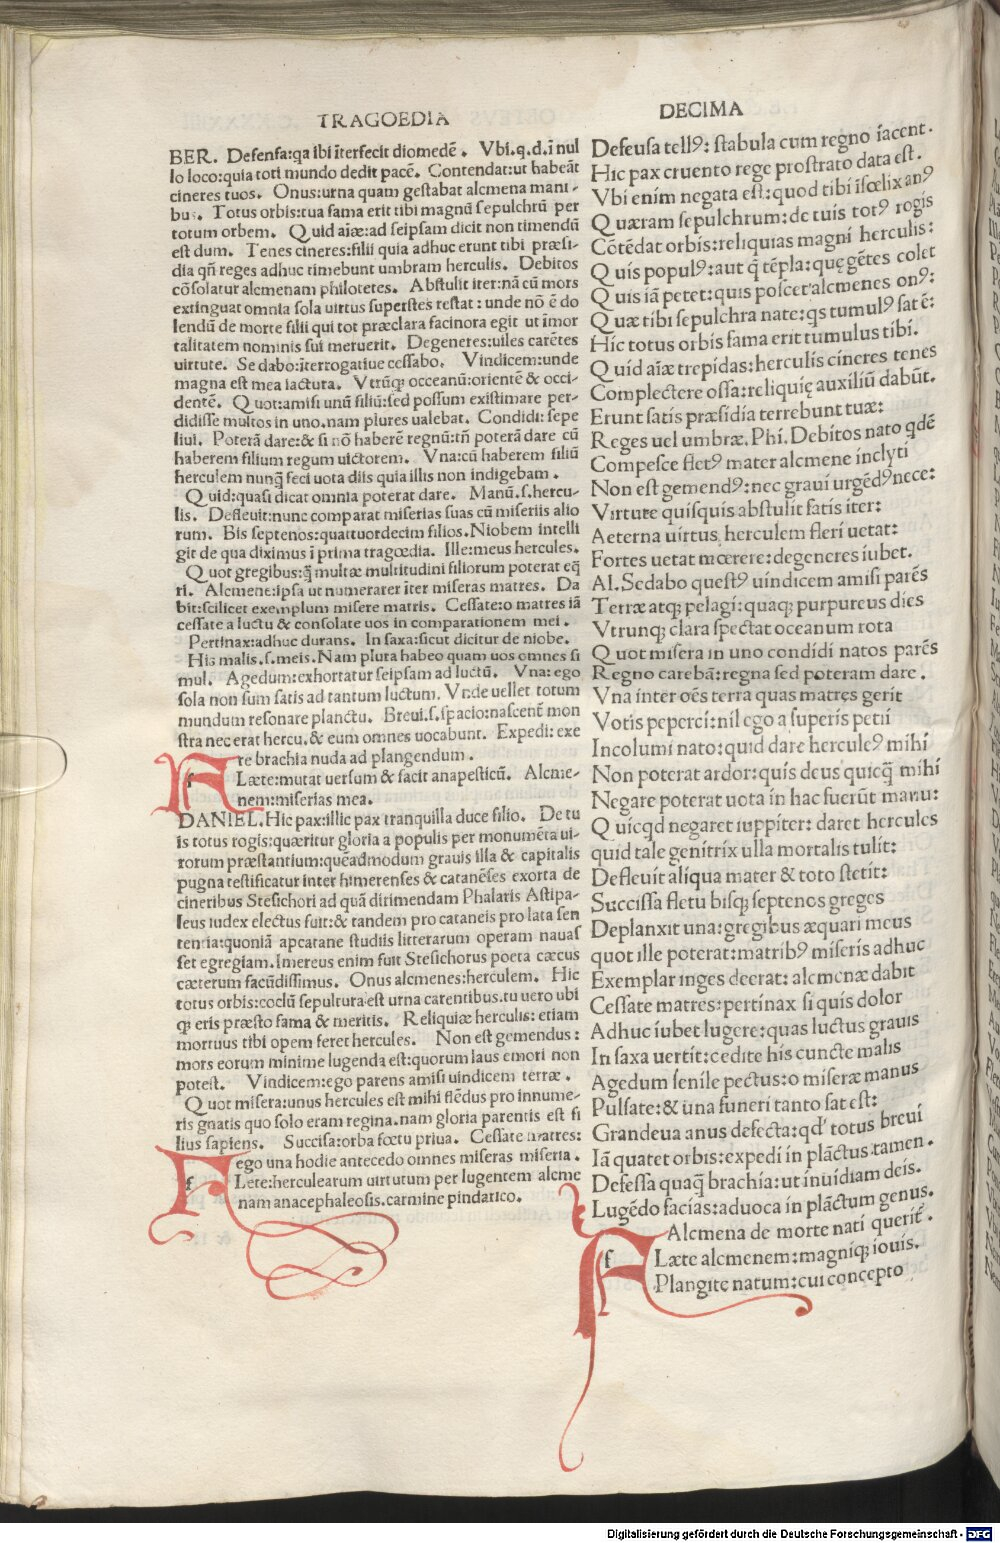 TRAGOEDIA DECIMA
BER. Defensa:qa ibi ĩterfecit diomedẽ. Vbi.q.d.ĩ nul
lo loco:quia toti mundo dedit pacẽ. Contendat:ut habeãt
cineres tuos. Onus:urna quam gestabat alcmena mani-
bus. Totus orbis:tua fama erit tibi magnũ sepulchrũ per
totum orbem. Quid aiæ:ad seipsam dicit non timendũ
est dum. Tenes cineres:filii quia adhuc erunt tibi præsi-
dia qñ reges adhuc timebunt umbram herculis. Debitos
cõsolatur alcmenam philotetes. Abstulit iter:nã cũ mors
extinguat omnia sola uirtus superstes restat: unde nõ ẽ do
lendũ de morte filii qui tot præclara facinora egit ut ĩmor
talitatem nominis sui meruerit. Degeneres:uiles carẽtes
uirtute. Se dabo:ĩterrogatiue cessabo. Vindicem:unde
magna est mea iactura. Vtrũq; occeanũ:orientẽ & occi-
dentẽ. Quot:amisi unũ filiũ:sed possum existimare per-
didisse multos in uno.nam plures ualebat. Condidi:sepe
liui. Poterã dare:& si nõ haberẽ regnũ:tñ poterã dare cũ
haberem filium regum uictorem. Vna:cũ haberem filiũ
herculem nunq̃ feci uota diis quia illis non indigebam.
Quid:quasi dicat omnia poterat dare. Manũ.s.hercu-
lis. Defleuit:nunc comparat miserias suas cũ miseriis alio
rum. Bis septenos:quattuordecim filios.Niobem intelli
git de qua diximus ĩ prima tragœdia. Ille:meus hercules.
Quot gregibus:q̃ multæ multitudini filiorum poterat eq̃
ri. Alcmene:ipsa ut numerarer iter miseras matres. Da
bit:scilicet exemplum misere matris. Cessate:o matres iã
cessate a luctu & consolate uos in comparationem mei.
Pertinax:adhuc durans. In saxa:sicut dicitur de niobe.
His malis.s.meis.Nam plura habeo quam uos omnes si
mul. Agedum:exhortatur seipsam ad luctũ. Vna:ego
sola non sum satis ad tantum luctum. Vnde uellet totum
mundum resonare planctu. Breui.s.spacio:nascent̃ mon
stra nec erat hercu.& eum omnes uocabunt. Expedi: exe
re brachia nuda ad plangendum.
f Læte:mutat uersum & facit anapesticũ. Alcme-
nem:miserias mea.
DANIEL.Hic pax:illic pax tranquilla duce filio. De tu
is totis rogis:quæritur gloria a populis per monumẽta ui-
rorum præstantium:quẽadmodum grauis illa & capitalis
pugna testificatur inter himerenses & catanẽses exorta de
cineribus Stesichori ad quã dirimendam Phalaris Astipa-
leus iudex electus fuit:& tandem pro cataneis pro lata sen
tentia:quoniã apcatane studiis litterarum operam nauas
set egregiam.Imereus enim fuit Stesichorus poeta cæcus
cæterum facũdissimus. Onus alcmenes:herculem. Hic
totus orbis:coclũ sepultura est urna carentibus.tu uero ubi
q; eris præsto fama & meritis. Reliquiæ herculis: etiam
mortuus tibi opem feret hercules. Non est gemendus:
mors eorum minime lugenda est:quorum laus emori non
potest. Vindicem:ego parens amisi uindicem terræ.
Quot misera:unus hercules est mihi flẽdus pro innume-
ris gnatis quo solo eram regina.nam gloria parentis est fi
lius sapiens. Succisa:orba fœtu priua. Cessate matres:
ego una hodie antecedo omnes miseras miseria.
f Lete:herculearum uirtutum per lugentem alcme
nam anacephaleosis.carmine pindarico.
Defeusa tellꝰ: stabula cum regno iacent.
Hic pax cruento rege prostrato data est.
Vbi enim negata est:quod tibi ĩsœlix anꝰ
Quæram sepulchrum:de tuis totꝰ rogis
Cõtẽdat orbis:reliquias magni herculis:
Quis populꝰ:aut q̃ tẽpla:quę gẽtes colet
Quis iã petet:quis poscet alcmenes onꝰ:
Quæ tibi sepulchra nate:qs tumulꝰ sat ẽ:
Hic totus orbis fama erit tumulus tibi.
Quid aiæ trepidas:herculis cineres tenes
Complectere ossa:reliquię auxiliũ dabũt.
Erunt satis præsidia terrebunt tuæ:
Reges uel umbræ. Phi. Debitos nato qdẽ
Compesce fletꝰ mater alcmene inclyti
Non est gemendꝰ:nec graui urgẽdꝰ nece:
Virtute quisquis abstulit fatis iter:
Aeterna uirtus herculem fleri uetat:
Fortes uetat mœrere:degeneres iubet.
Al. Sedabo questꝰ uindicem amisi parẽs
Terræ atq; pelagi:quaq; purpureus dies
Vtrunq; clara spectat oceanum rota
Quot misera in uno condidi natos parẽs
Regno carebã:regna sed poteram dare.
Vna inter oẽs terra quas matres gerit
Votis peperci:nil ego a superis petii
Incolumi nato:quid dare herculeꝰ mihi
Non poterat ardor:quis deus quicq̃ mihi
Negare poterat uota in hac fuerũt manu:
Quicqd negaret iuppiter: daret hercules
quid tale genitrix ulla mortalis tulit:
Defleuit aliqua mater & toto stetit:
Succissa fletu bisq; septenos greges
Deplanxit una:gregibus æquari meus
quot ille poterat:matribꝰ miseris adhuc
Exemplar inges deerat: alcmenæ dabit
Cessate matres:pertinax si quis dolor
Adhuc iubet lugere:quas luctus grauis
In saxa uertit:cedite his cuncte malis
Agedum senile pectus:o miseræ manus
Pulsate:& una funeri tanto sat est:
Grandeua anus defecta:qđ totus breui
Iã quatet orbis:expedi in plãctus tamen.
Defessa quaq̃ brachia:ut inuidiam deis.
Lugẽdo facias:aduoca in plãctum genus.
Alcmena de morte nati querit̃.
f Læte alcmenem:magniq; iouis.
Plangite natum:cui concepto
Digitalisierung gefördert durch die Deutsche Forschungsgemeinschaft - DFG